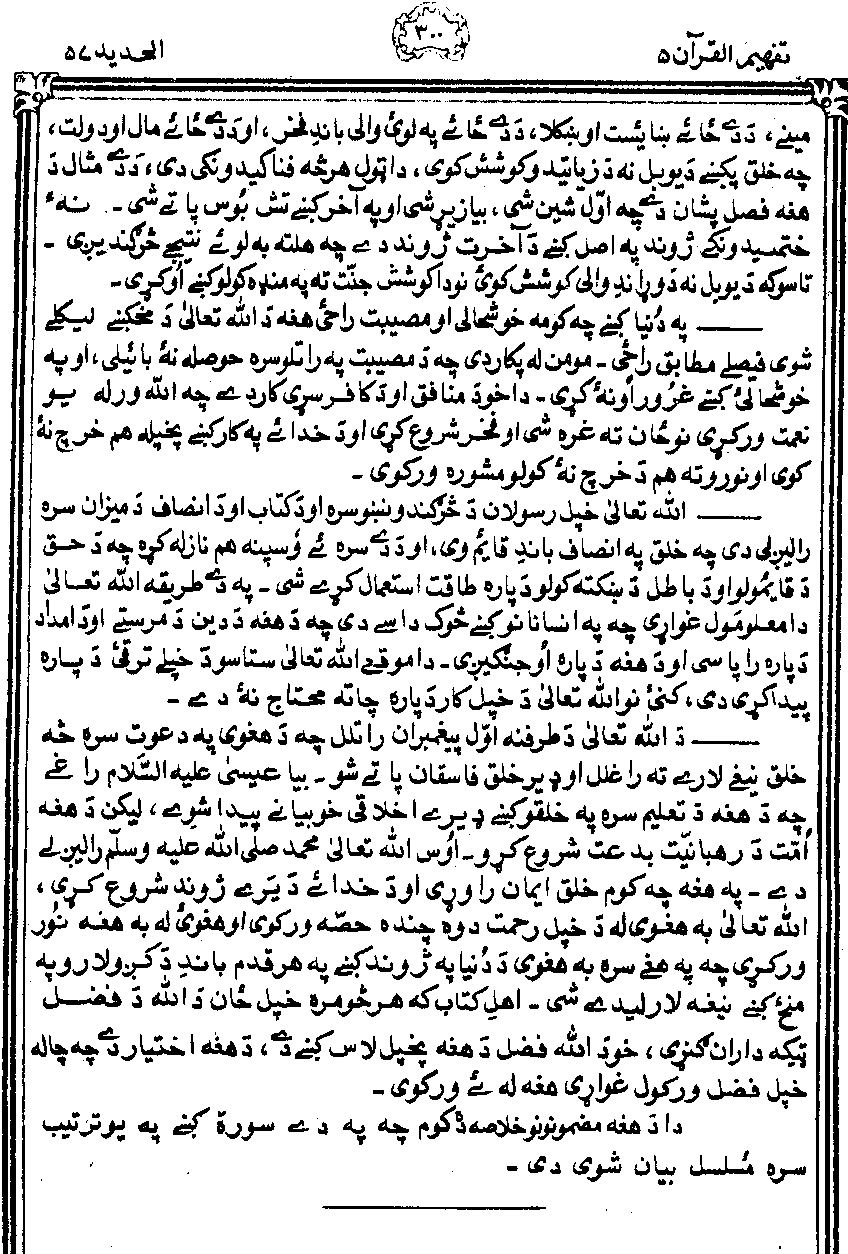 تفہیم القرآن ۵
۳۰۰
الحدید ۵۷
مینے، دَدے ځائے ښائست او ښکلا، دَدے ځائے په لوئ والی باندِ فخر، اودَدے ځائے مال اودولت،
چه خلق پکښے دَیوبل نه دَ زیاتیدو کوشش کوی، دا ټول هرڅه فناکیدونکی دی، دَدے مثال دَ
هغه فصل پشان دے چه اوّل شین شی، بیا زیړ شی او په آخرکښے تش بُوس پاتے شی۔ نهٔ
ختمیدونکے ژوند په اصل کښے دَ آخرت ژوند دے چه هلته به لوئے نتیجے څرګندیږی۔
تاسوکه دَیوبل نه دَوړاندِ والی کوشش کوئ نو دا کوشش جنّت ته په منډه کولوکښے اُوکړی۔
په دُنیا کښے چه کومه خوشحالی او مصیبت راځی هغه دَ الله تعالیٰ دَ مخکښے لیکلے
شوی فیصلے مطابق راځی۔ مومن له پکار دی چه دَ مصیبت په راتلو سره حوصله نهٔ بائیلی، او په
خوشحالئ کښے غرُور اُونهٔ کړی۔ دا خودَ منافق اودَ کافر سړی کار دے چه الله ورله یو
نعمت ورکړی نو ځان ته غره شی او فخر شروع کړی اودَ خدائے په کارکښے پخپله هم خرچ نهٔ
کوی او نورو ته هم دَ خرچ نهٔ کولو مشوره ورکوی۔
الله تعالیٰ خپل رسولان دَ څرګندو نښو سره اودَ کتاب اودَ انصاف دَ میزان سره
رالیږلی دی چه خلق په انصاف باندِ قایٔم وی، اودَدے سره ئے وُسپنه هم نازله کړه چه دَ حق
دَ قایٔمولو اودَ باطل دَ ښکته کولو دَپاره طاقت استعمال کړے شی۔ په دے طریقه الله تعالیٰ
دا معلومول غواړی چه په انسانانو کښے څوک داسے دی چه دَ هغه دَ دین دَ مرستے اودَ امداد
دَپاره راپاسی اودَ هغه دَپاره اُوجنګیږی۔ دا موقعے الله تعالیٰ ستاسو دَ خپلے ترقئ دَ پاره
پیدا کړی دی، کنئ نو الله تعالیٰ دَ خپل کار دَپاره چاته محتاج نهٔ دے۔
دَ الله تعالیٰ دَ طرفنه اوّل پیغمبران راتلل چه دَ هغوی په دعوت سره څه
خلق نیغے لارے ته راغلل او ډیر خلق فاسقان پاتے شو۔ بیا عیسیٰ علیه السّلام راغے
چه دَ هغه دَ تعلیم سره په خلقوکښے ډیرے اخلاقی خوبیانے پیدا شوے، لیکن دَ هغه
اُمّت دَ رهبانیّت بدعت شروع کړو۔ اوُس الله تعالیٰ محمد صلی الله علیه وسلّم رالیږلے
دے۔ په هغه چه کوم خلق ایمان راوړی اودَ خدائے دَ یَرے ژوند شروع کړی،
الله تعالیٰ به هغوی له دَ خپل رحمت دوه چنده حصّه ورکوی او هغوی له به هغه نُور
ورکړی چه په هغے سره به هغوی دَ دُنیا په ژوندکښے په هرقدم باندِ دَ کږو لارو په
منځ کښے نیغه لار لیدے شی۔ اهلِ کتاب که هر څومره خپل ځان دَ الله دَ فضل
ټیکه داران ګنړی، خودَ الله فضل دَ هغه پخپل لاس کښے دے، دَ هغه اختیار دے چه چاله
خپل فضل ورکول غواړی هغه له ئے ورکوی۔
دا دَ هغه مضمونونو خلاصه ده کوم چه په دے سورة کښے په یو ترتیب
سره مُسلسل بیان شوی دی۔